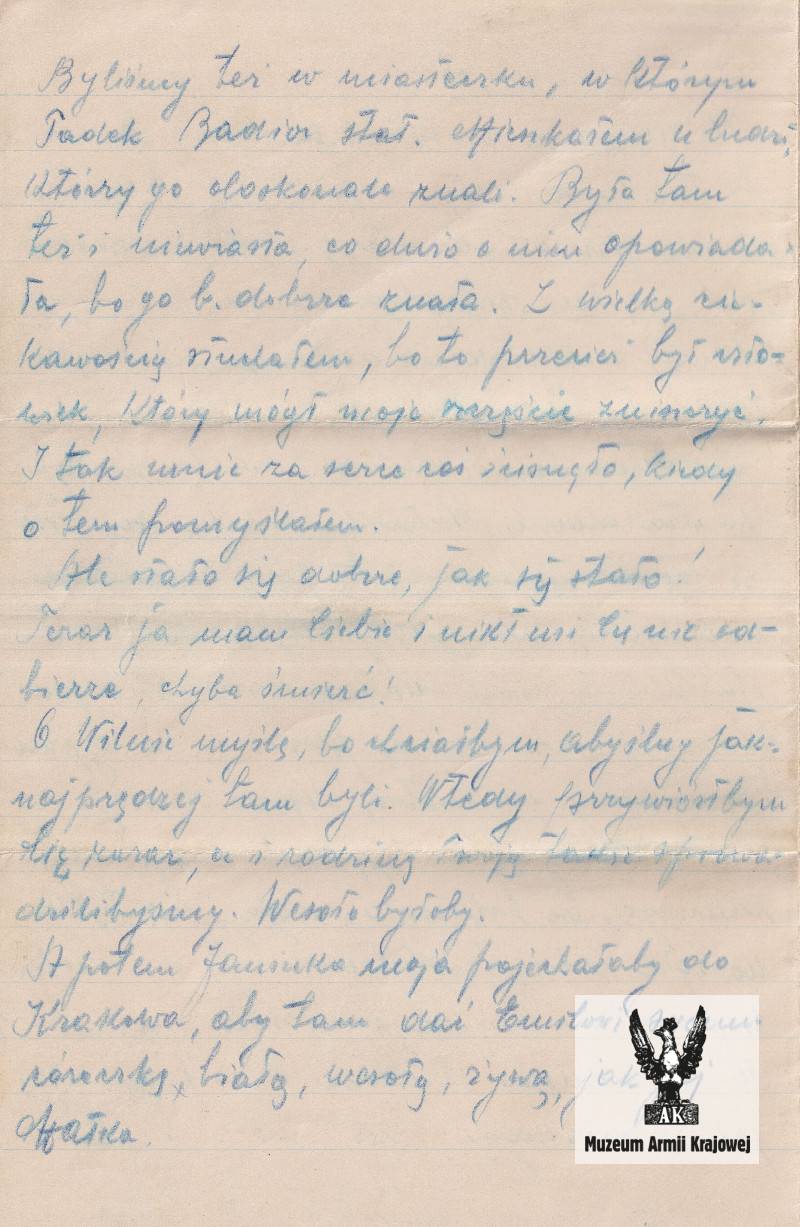 Byliśmy też w miasteczku, w którym
Tadek Badior stał. Mieszkałem u ludzi,
którzy go doskonale znali. Była tam
też i niewiasta, co dużo o nim opowiada-
ła, bo go b. dobrze znała. Z wielką cie-
kawością słuchałem, bo to przecież był czło-
wiek, który mógł moje szczęście zniszczyć.
I tak mnie za serce coś ścisnęło, kiedy
o tem pomyślałem.
Ale stało się dobrze, jak się stało!
Teraz ja mam Ciebie i nikt mi Cię nie od-
bierze, chyba śmierć!
O Wilnie myślę, bo chciałbym, abyśmy jak-
najprędzej tam byli. Wtedy przywiózłbym
Cię zaraz, a i rodzinę Twoją także sprowa-
dzilibyśmy. Wesoło byłoby.
A potem Janinka moja pojechałaby do
Krakowa, aby tam dać Emilowi swemu
córeczkę, białą, wesołą, żywą, jak jej
Matka.
AK
Muzeum Armii Krajowej